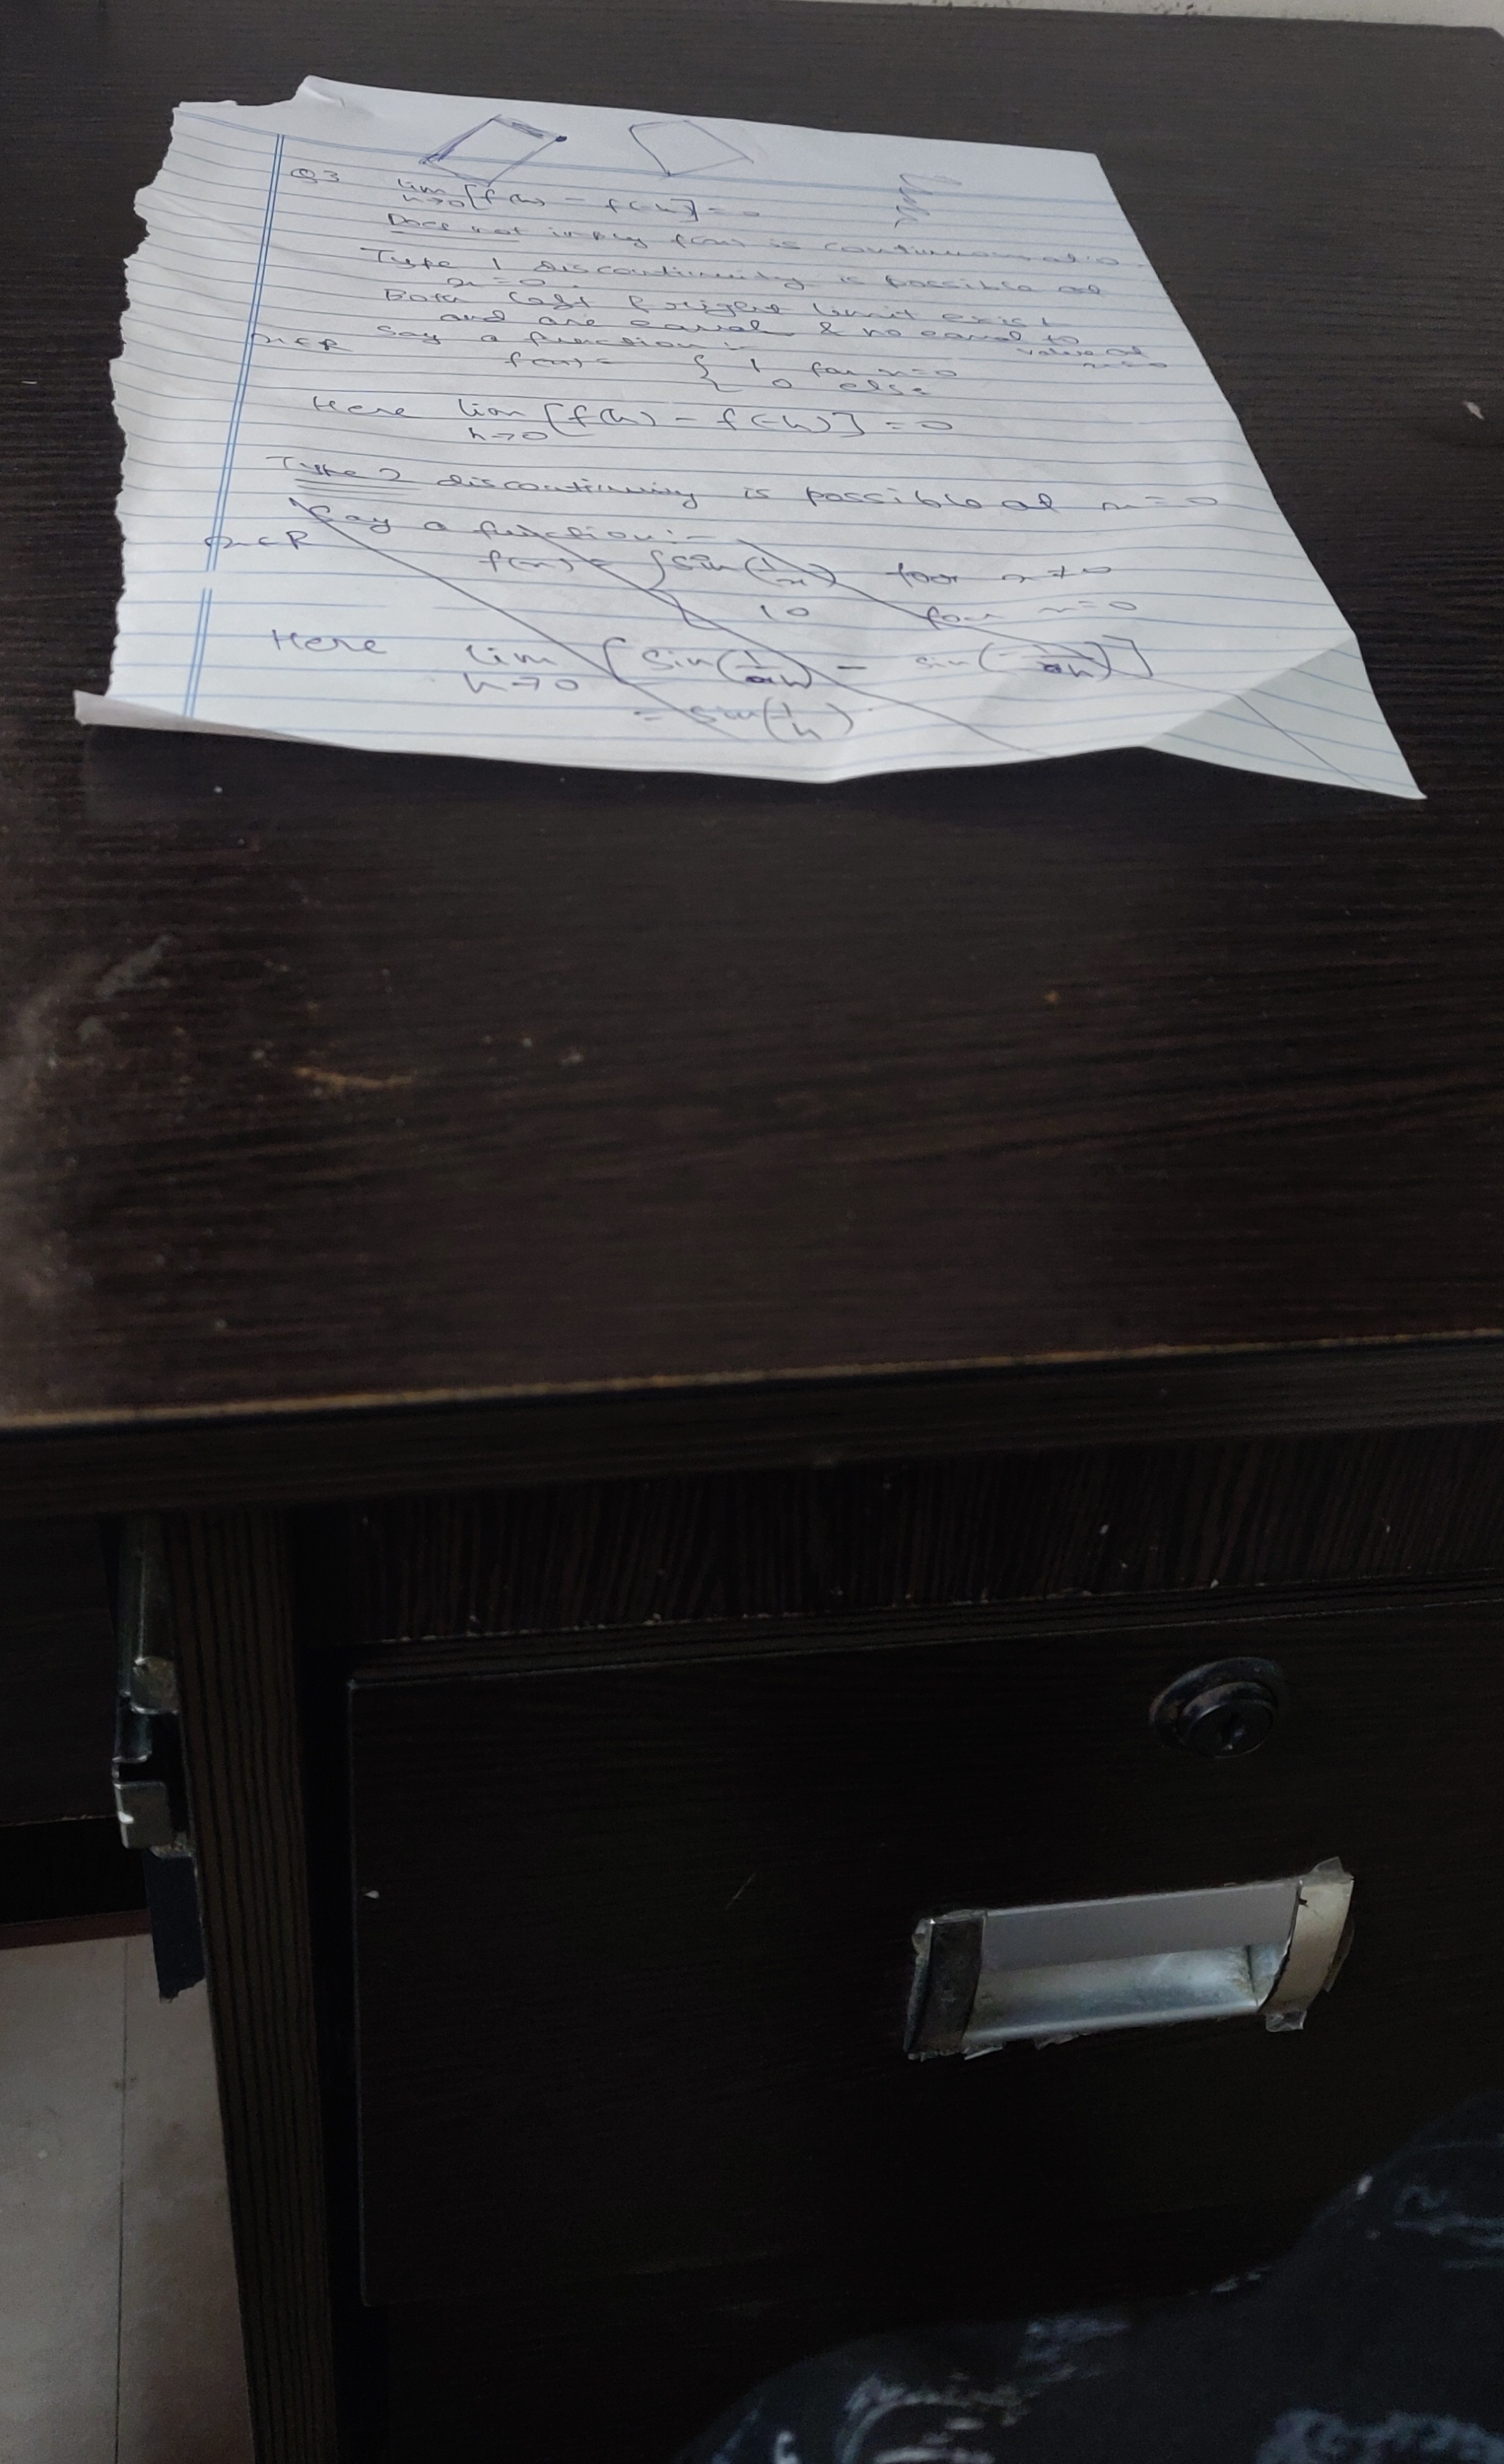 Q3 lim h→0 [f(h) - f(-h)] = 0
Does not imply f(x) is continuous at 0.
Type 1 discontinuity is possible at
x = 0.
Both left & right limit exist
and are equal & no equal to value at x=0
Say a function :-
x∈R f(x) = { 1 for x=0
0 else
Here lim h→0 [f(h) - f(-h)] = 0
Type 2 discontinuity is possible at x = 0
Say a function :-
x∈R f(x) = { sin(1/x) for x≠0
10 for x=0
Here lim h→0 [sin(1/h) - sin(-1/h)]
= sin(1/h)